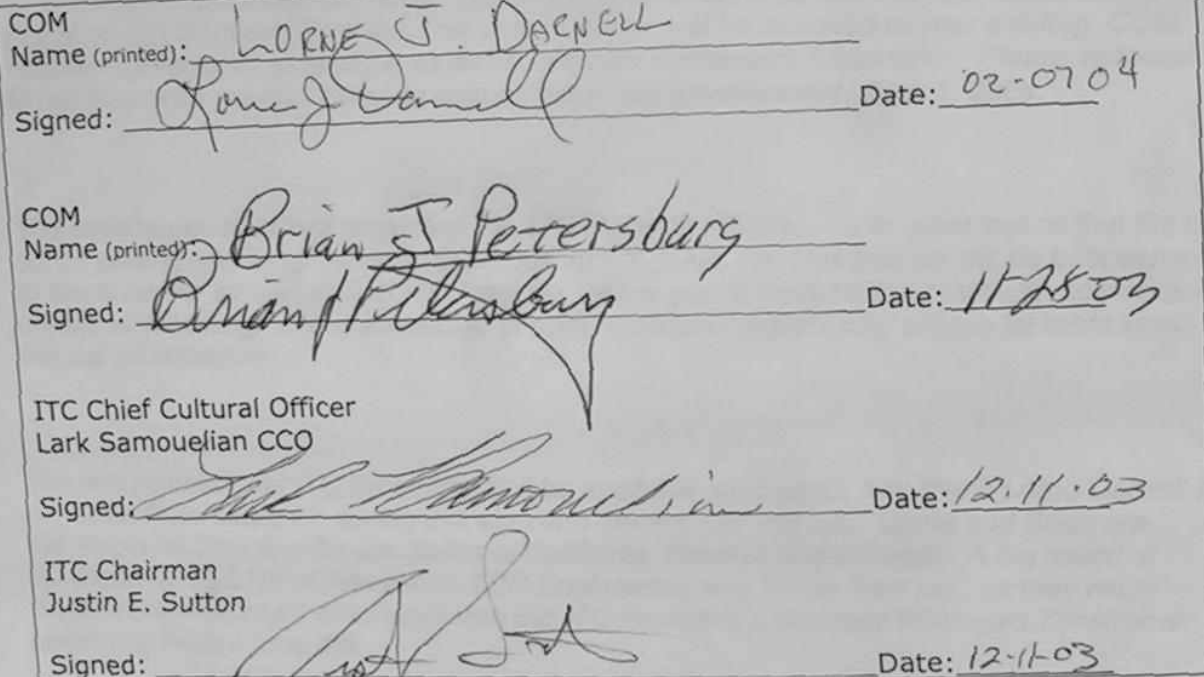 COM
Name (printed): LORNE J. DARNELL
Signed: Lorne J Darnell Date: 02-07 04
COM
Name (printed): Brian J Petersburg
Signed: Brian J Petersburg Date: 11-25-03
ITC Chief Cultural Officer
Lark Samouelian CCO
Signed: Lark Samouelian Date: 12.11.03
ITC Chairman
Justin E. Sutton
Signed: Date: 12-11-03